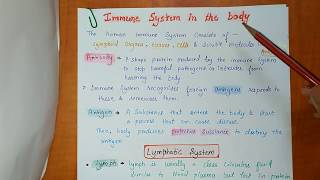 Immune System in the body
The Human Immune System consists of -
Lymphoid Organs, tissues, Cells & Soluble Molecules
Antibody → Y shape protein produced by the immune system
to stop harmful pathogens or intruders from
harming the body
Immune System Recognises foreign Antigens responds to
these & removes them.
Antigen → A Substance that enters the body & start
a process that can cause disease.
Then, body produces protective Substance to destroy the
antigen
Lymphatic System
Lymph → Lymph is usually a clear fluid
Similar to blood plasma but less in protein